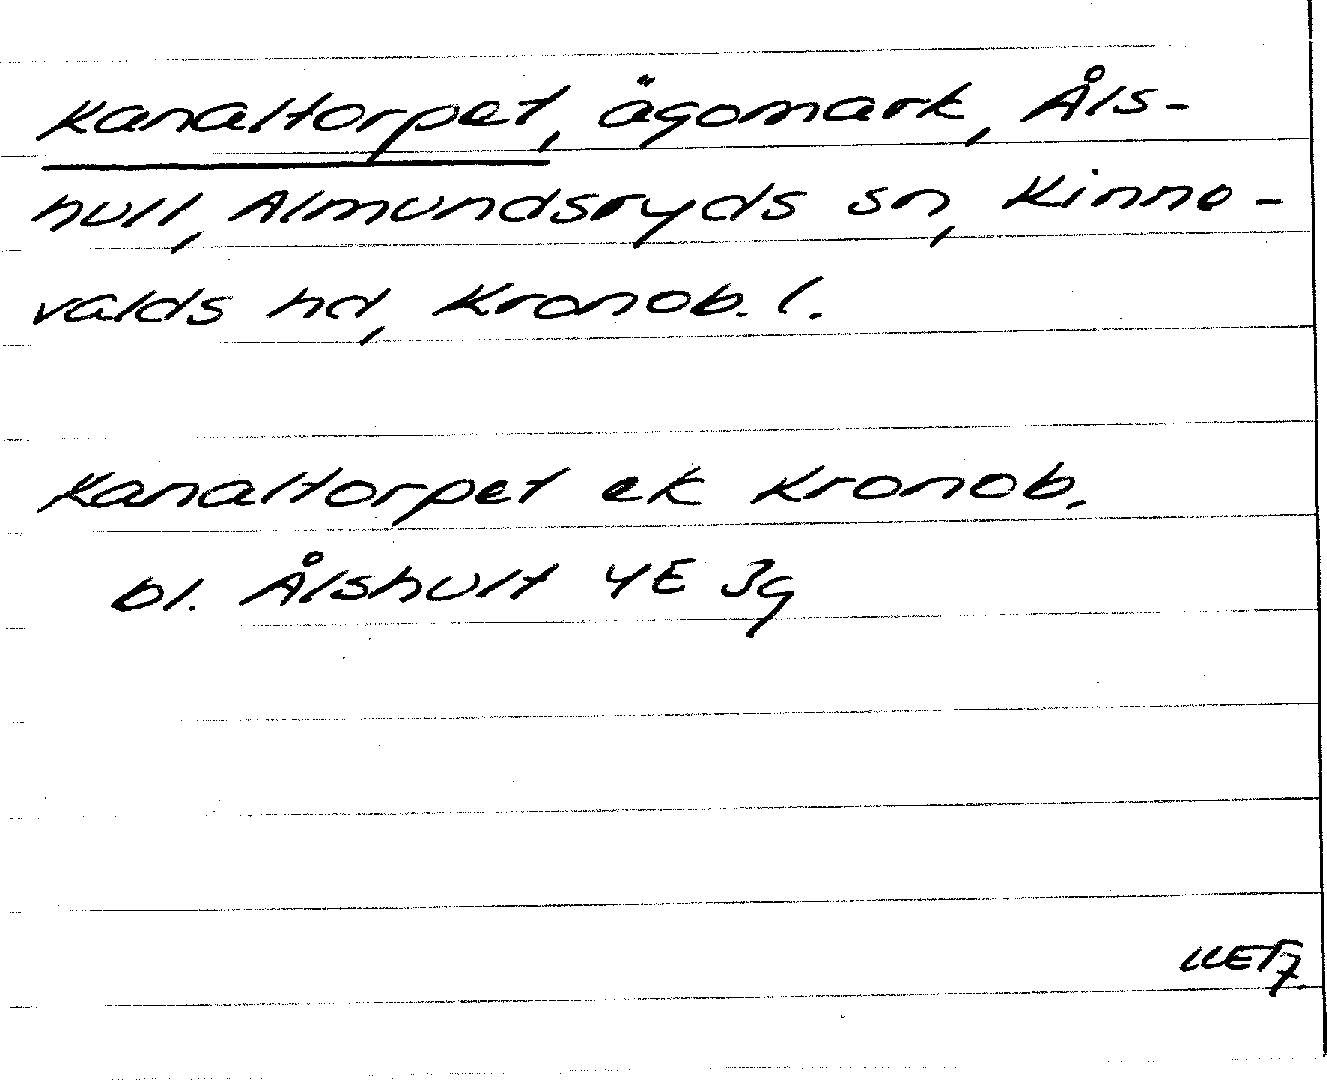 Kanaltorpet, ägomark, Åls-
hult, Almundsryds sn, Kinne-
valds hd, Kronob. l.
Kanaltorpet ek Kronob.
bl. Ålshult 4E 3g